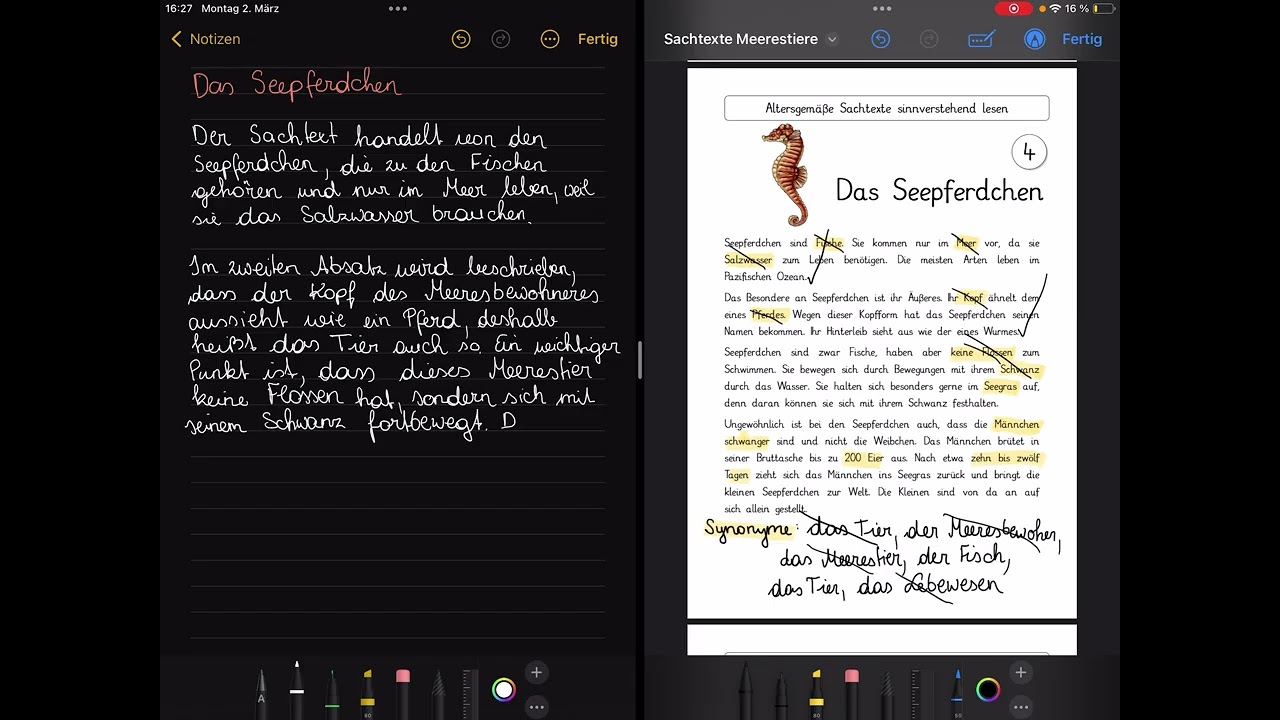 16:27 Montag 2. März
Notizen
Fertig
Das Seepferdchen
Der Sachtext handelt von den
Seepferdchen, die zu den Fischen
gehören und nur im Meer leben, weil
sie das Salzwasser brauchen.
Im zweiten Absatz wird beschrieben,
dass der Kopf des Meeresbewohneres
aussieht wie ein Pferd, deshalb
heißt das Tier auch so. Ein wichtiger
Punkt ist, dass dieses Meerestier
keine Flossen hat, sondern sich mit
seinem Schwanz fortbewegt. D
A
80
16 %
Sachtexte Meerestiere
Fertig
Altersgemäße Sachtexte sinnverstehend lesen
4
Das Seepferdchen
Seepferdchen sind Fische. Sie kommen nur im Meer vor, da sie
Salzwasser zum Leben benötigen. Die meisten Arten leben im
Pazifischen Ozean.
Das Besondere an Seepferdchen ist ihr Äußeres. Ihr Kopf ähnelt dem
eines Pferdes. Wegen dieser Kopfform hat das Seepferdchen seinen
Namen bekommen. Ihr Hinterleib sieht aus wie der eines Wurmes.
Seepferdchen sind zwar Fische, haben aber keine Flossen zum
Schwimmen. Sie bewegen sich durch Bewegungen mit ihrem Schwanz
durch das Wasser. Sie halten sich besonders gerne im Seegras auf,
denn daran können sie sich mit ihrem Schwanz festhalten.
Ungewöhnlich ist bei den Seepferdchen auch, dass die Männchen
schwanger sind und nicht die Weibchen. Das Männchen brütet in
seiner Bruttasche bis zu 200 Eier aus. Nach etwa zehn bis zwölf
Tagen zieht sich das Männchen ins Seegras zurück und bringt die
kleinen Seepferdchen zur Welt. Die Kleinen sind von da an auf
sich allein gestellt.
Synonyme: das Tier, der Meeresbewoher,
das Meerestier, der Fisch,
das Tier, das Lebewesen
80
50